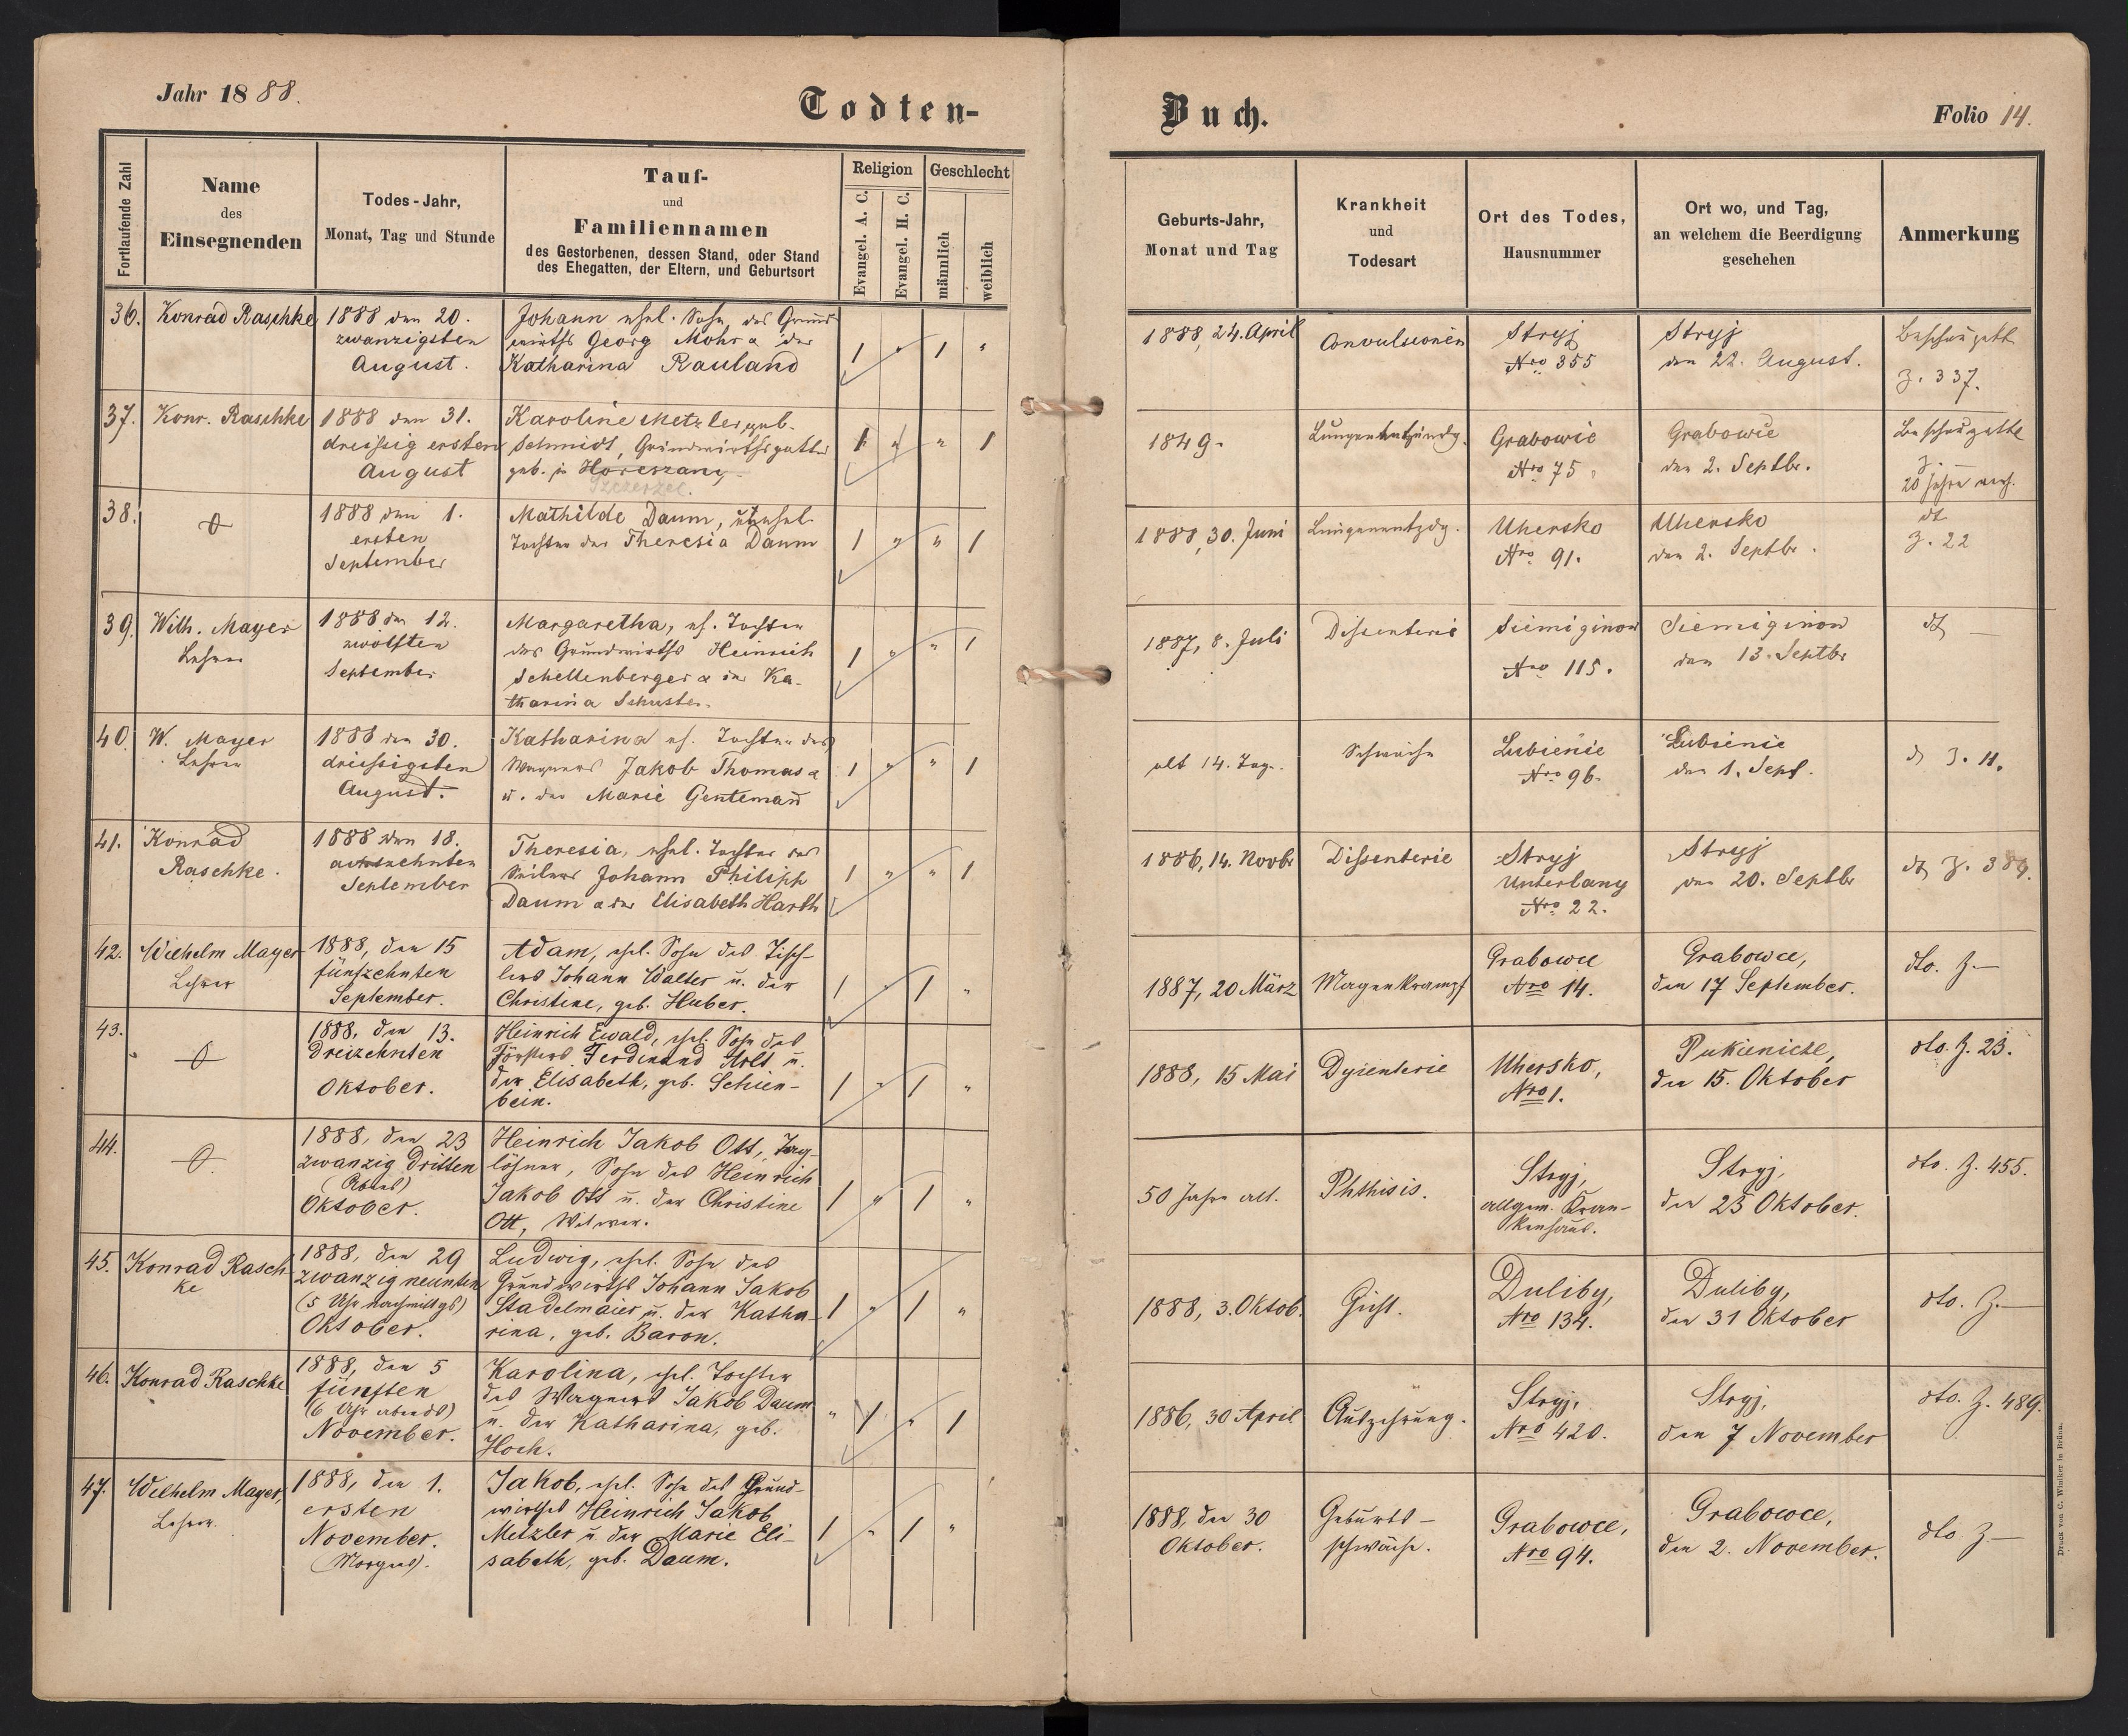 Jahr 1888.
Todten-
Buch.
Folio 14.
Fortlaufende Zahl
Name
des
Einsegnenden
Todes-Jahr,
Monat, Tag und Stunde
Tauf-
und
Familiennamen
des Gestorbenen, dessen Stand, oder Stand
des Ehegatten, der Eltern, und Geburtsort
Religion
Evangel. A. C.
Evangel. H. C.
Geschlecht
männlich
weiblich
Geburts-Jahr,
Monat und Tag
Krankheit
und
Todesart
Ort des Todes,
Hausnummer
Ort wo, und Tag,
an welchem die Beerdigung
geschehen
Anmerkung
36.
Konrad Raschke
1888 den 20.
zwanzigsten
August.
Johann ehel. Sohn des Grund
wirths Georg Mohr & der
Katharina Rauland
1 " 1 "
1888, 24. April
Convulsionen
Stryj
Nro 355
Stryj
den 22. August.
Beschauzettl
Z. 337.
37.
Konr. Raschke
1888 den 31.
dreissig ersten
August
Karoline Metzler, geb.
Schmidt, Grundwirthsgattin
geb. in Horeszany
Szczerzec.
1 " " 1
1849.
Lungenentzündg.
Grabowie
Nro 75
Grabowie
den 2. Septbr.
Beschauzettl
Z. —
20 Jahre verh.
38.
1888 den 1.
ersten
September
Mathilde Daum, unehel
Tochter der Theresia Daum
1 " " 1
1888, 30. Juni
Lungenentzdg.
Uhersko
Nro 91.
Uhersko
den 2. Septbr.
dt
Z. 22
39.
Wilh. Mayer
Lehrer
1888 den 12.
zwölften
September
Margaretha, eh. Tochter
des Grundwirths Heinrich
Schellenberger & der Ka-
tharina Schuster.
1 " " 1
1887, 8. Juli
Dissenterie
Siemiginow
Nro 115.
Siemiginow
den 13. Septbr
dt —
40.
W. Mayer
Lehrer
1888 den 30.
dreissigsten
August.
Katharina eh. Tochter des
Wagners Jakob Thomas &
u. der Marie Gentemann
1 " " 1
alt 14. Tage.
Schwäche
Lubienie
Nro 96.
Lubienie
den 1. Sept.
dt Z. 11.
41.
Konrad
Raschke.
1888 den 18.
achtzehnten
September
Theresia, ehel. Tochter des
Seilers Johann Philipp
Daum & der Elisabeth Harth
1 " " 1
1886, 14. Novbr
Dissenterie
Stryj
Unterlany
Nro 22.
Stryj
den 20. Septbr
dt Z. 389.
42.
Wilhelm Mayer
Lehrer
1888, den 15
fünfzehnten
September.
Adam, ehel. Sohn des Tisch-
lers Johann Walter u. der
Christine, geb. Huber.
1 " 1 "
1887, 20 März
Magenkrampf
Grabowce
Nro 14.
Grabowce,
den 17 September.
dto. Z.—
43.
1888, den 13.
Dreizehnten
Oktober.
Heinrich Ewald, ehel. Sohn des
Försters Ferdinand Holt u.
der Elisabeth, geb. Schien-
bein.
1 " 1 "
1888, 15 Mai
Dysenterie
Uhersko,
Nro 1.
Pukienicze,
den 15. Oktober
dto. Z. 23.
44.
1888, den 23
zwanzig dritten
(Abends)
Oktober.
Heinrich Jakob Ott, Tag-
löhner, Sohn des Heinrich
Jakob Ott u. der Christine
Ott, Witwer.
1 " 1 "
50 Jahre alt.
Phthisis.
Stryj,
allgem. Kran-
kenhaus.
Stryj,
den 25 Oktober.
dto. Z. 455.
45.
Konrad Rasch
ke
1888, den 29
zwanzig neunten
(5 Uhr nachmittgs)
Oktober.
Ludwig, ehel. Sohn des
Grundwirths Johann Jakob
Stadelmaier u. der Katha-
rina, geb. Baron.
1 " 1 "
1888, 3. Oktob.
Gicht.
Duliby,
Nro 134.
Duliby,
den 31 Oktober
dto. Z.—
46.
Konrad Raschke
1888, den 5
fünften
(6 Uhr abends)
November.
Karolina, ehel. Tochter
des Wagners Jakob Daum
u. der Katharina, geb.
Hoch.
" 1 " 1
1886, 30 April
Auszehrung.
Stryj,
Nro 420.
Stryj,
den 7 November
dto. Z. 489.
47.
Wilhelm Mayer,
Lehrer.
1888, den 1.
ersten
November.
(Morgens).
Jakob, ehel. Sohn des Grund-
wirthes Heinrich Jakob
Metzler u. der Marie Eli-
sabeth, geb. Daum.
1 " 1 "
1888, den 30
Oktober.
Geburts-
schwäche.
Grabowce,
Nro 94.
Grabowce,
den 2. November.
dto. Z.—
Druck von C. Winiker in Brünn.